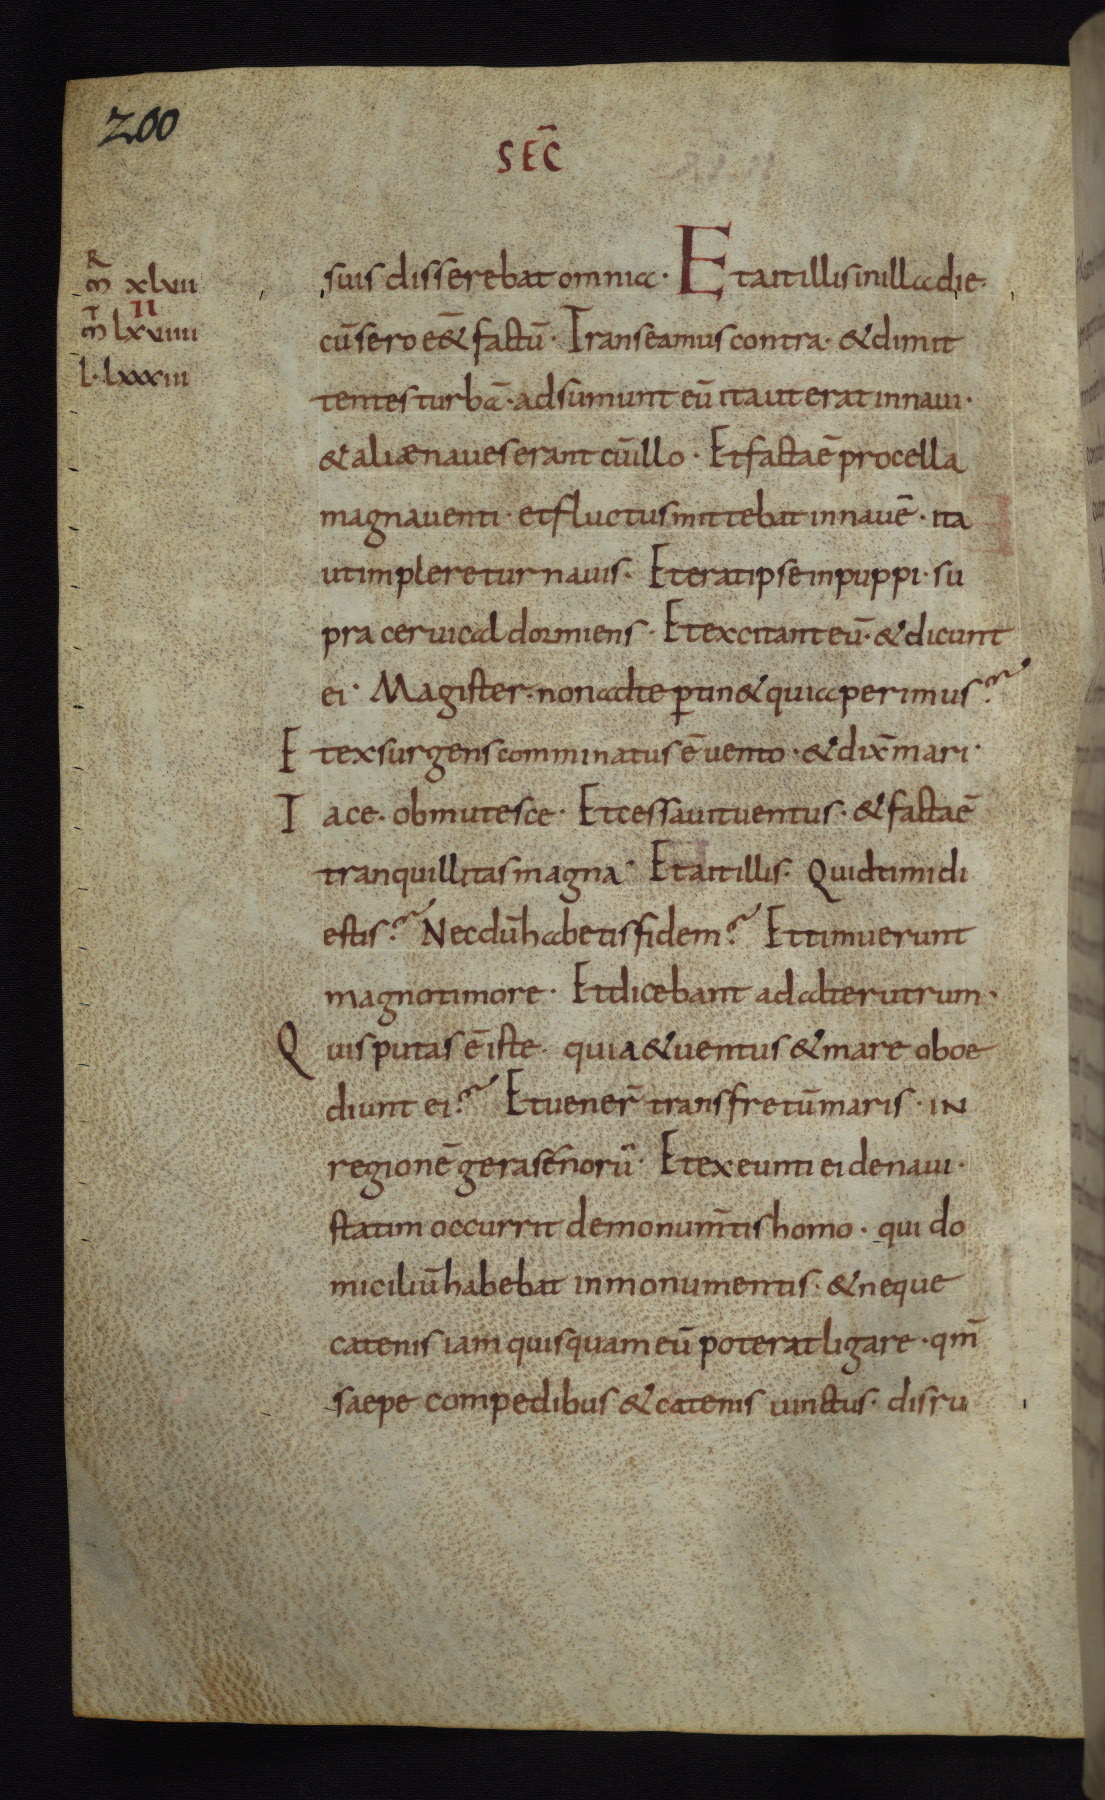 200
SEC̄
R
m̄ xlvii
II
T
m̄ lxviiii
l · lxxxiii
suis disserebat omnia · Et ait illis in illa die ·
cū sero eē& factū · Transeamus contra · & dimit
tentes turbā · adsumunt eū ita ut erat in naui ·
& aliæ naues erant cū illo · Et facta ē procella
magna uenti · et fluctus mittebat in nauē · ita
ut impleretur nauis · Et erat ipse in puppi · su
pra ceruical dormiens · Et excitant eū · & dicunt
ei · Magister · non ad te ꝑtin& quia perimus?
Et exsurgens comminatus ē uento · & dix̄ mari ·
Tace · obmutesce · Et cessauit uentus · & facta ē
tranquillitas magna · Et ait illis · Quid timidi
estis? Necdū habetis fidem? Et timuerunt
magno timore · Et dicebant ad alterutrum ·
Quis putas ē iste · quia & uentus & mare oboe
diunt ei? Et uener̄ trans fretū maris · IN
regionē gerasenorū · Et exeunti ei de naui ·
statim occurrit de monum̄tis homo · qui do
miciliū habebat in monumentis · & neque
catenis iam quisquam eū poterat ligare · qm̄
saepe compedibus & catenis uinctus · disru